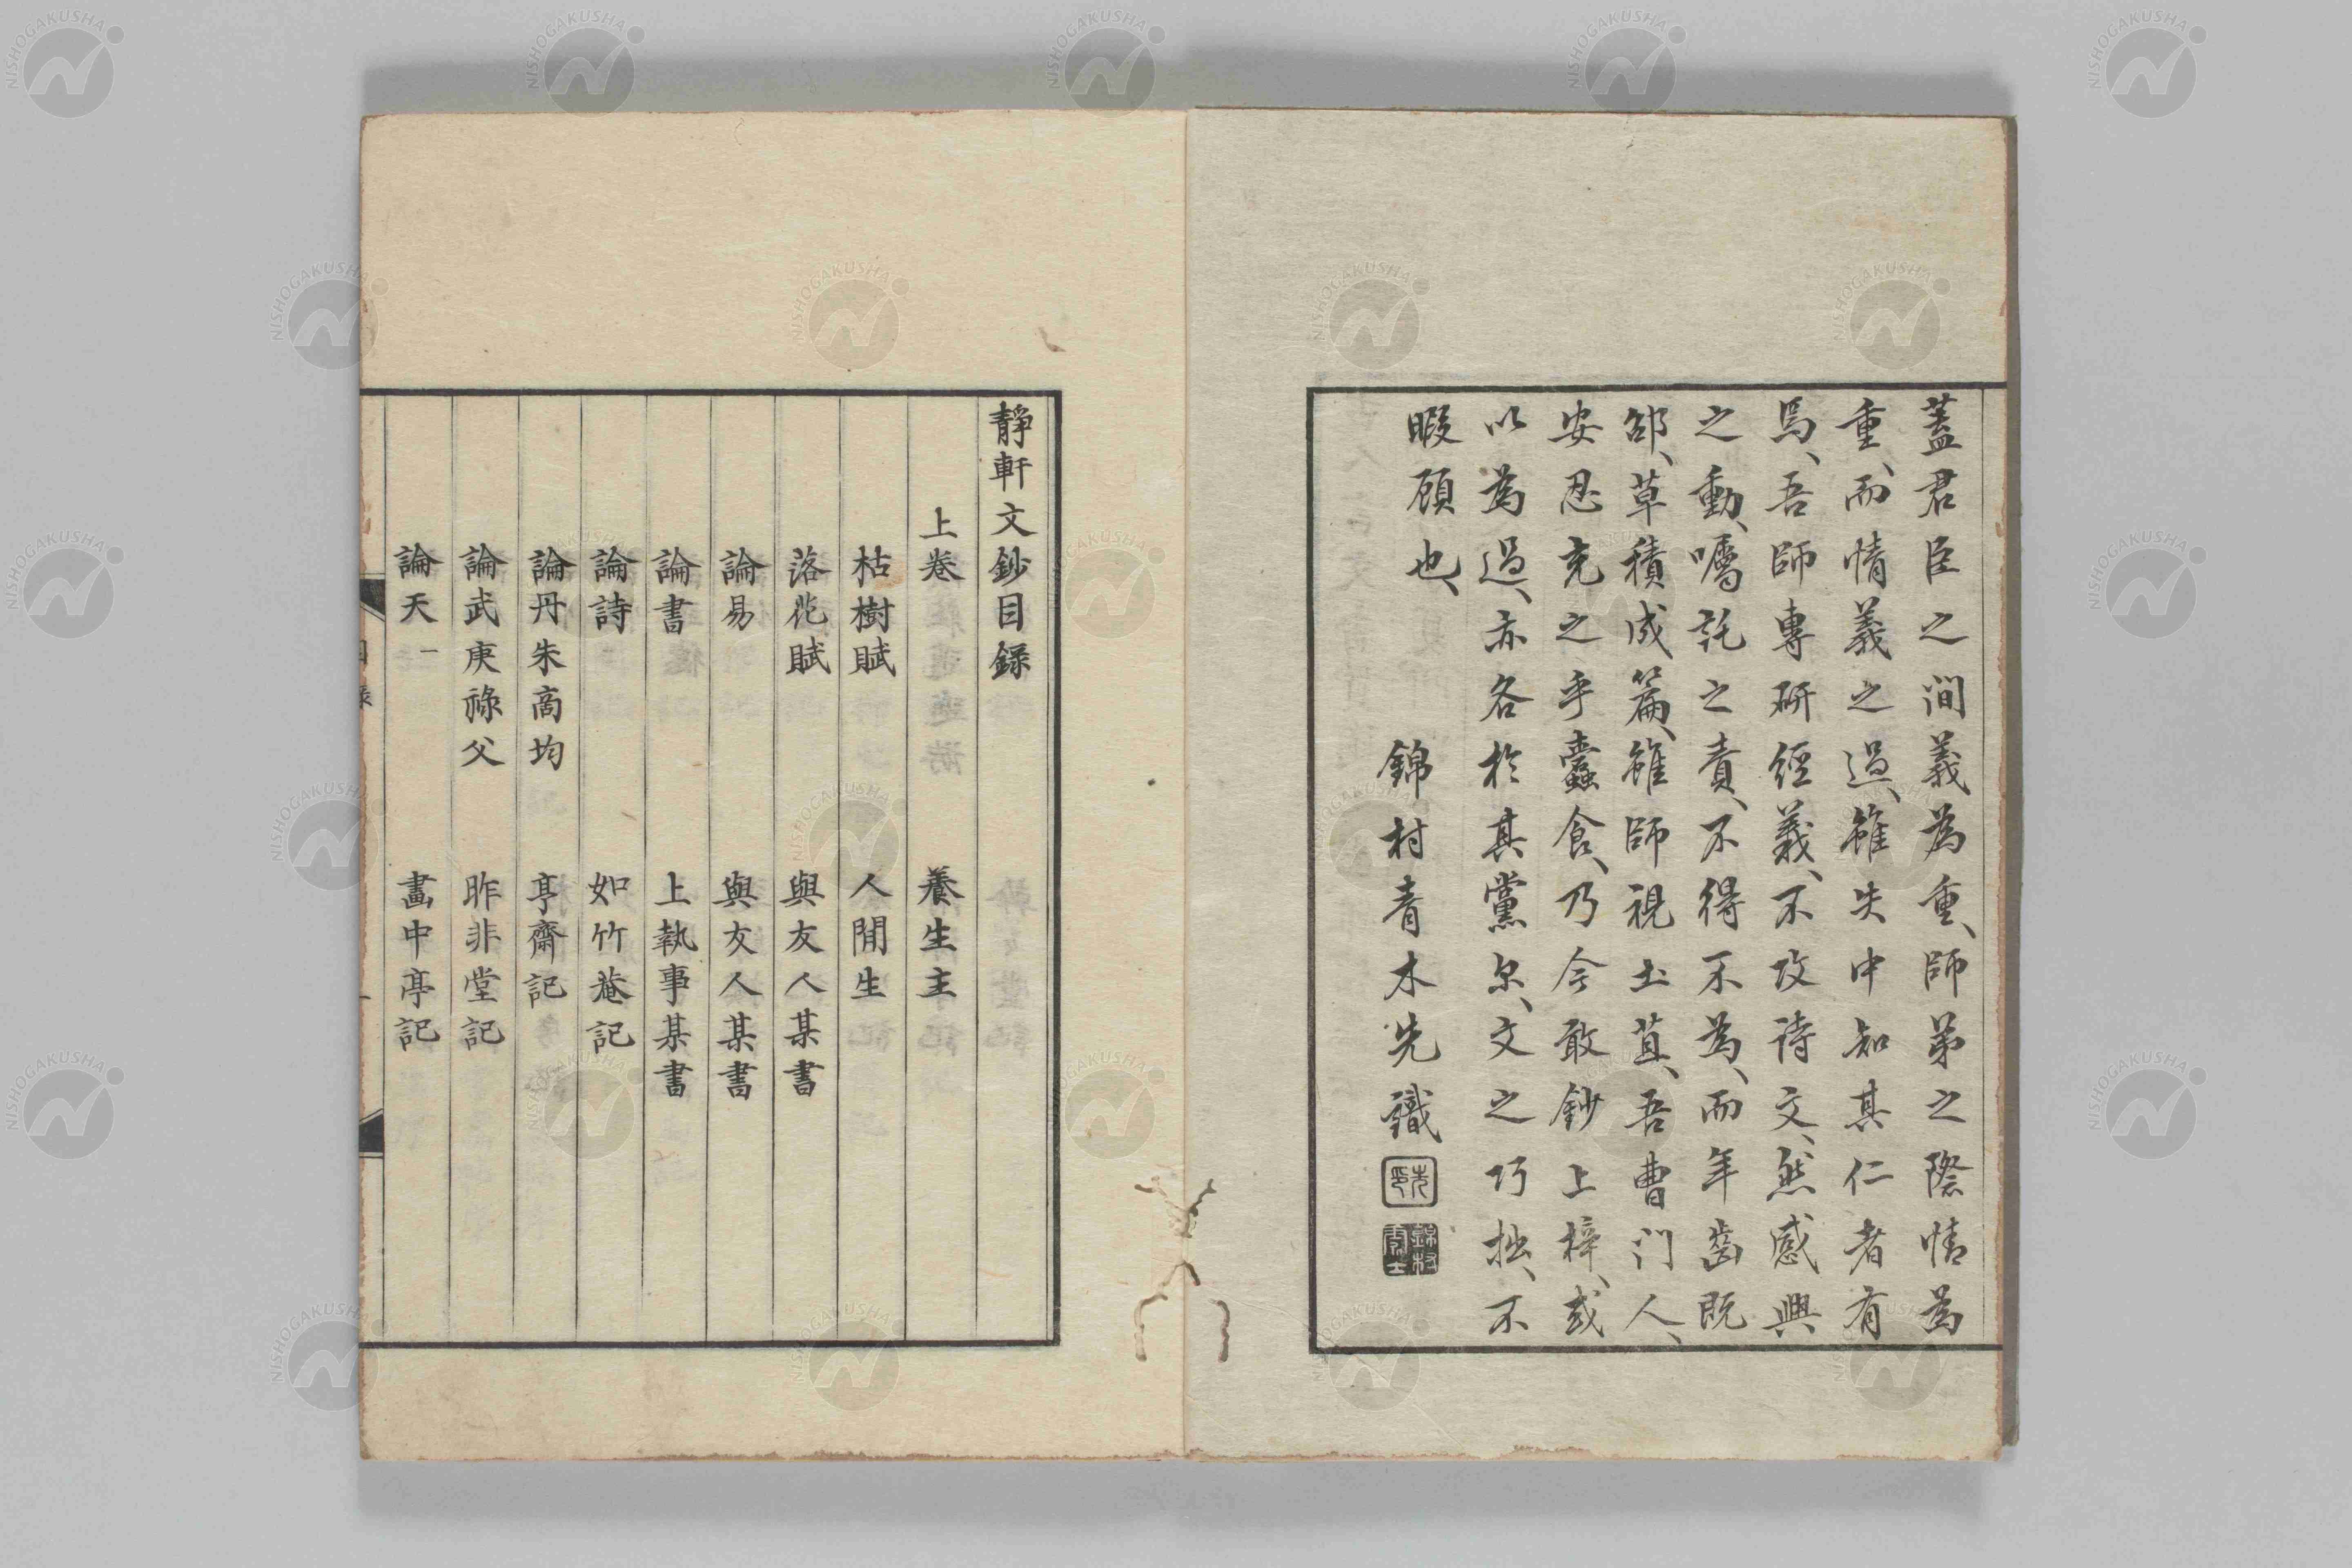 蓋君臣之間義為重、師弟之際情為
重、而情義之過、雖失中知其仁者有
焉、吾師專研經義、不攻詩文、然感興
之動、囑託之責、不得不為、而年齒既
邵、草積成篇、雖師視土苴、吾曹門人、
安忍充之乎蠹食、乃今敢鈔上梓、或
以為過、亦各於其黨尔、文之巧拙、不
暇顧也、
錦村青木先識
靜軒文鈔目錄
上卷
枯樹賦
落花賦
論易
論書
論詩
論丹朱商均
論武庚祿父
論天一
養生主
人間生
與友人某書
與友人某書
上執事某書
如竹菴記
亭齋記
昨非堂記
畫中亭記
NISHOGAKUSHA